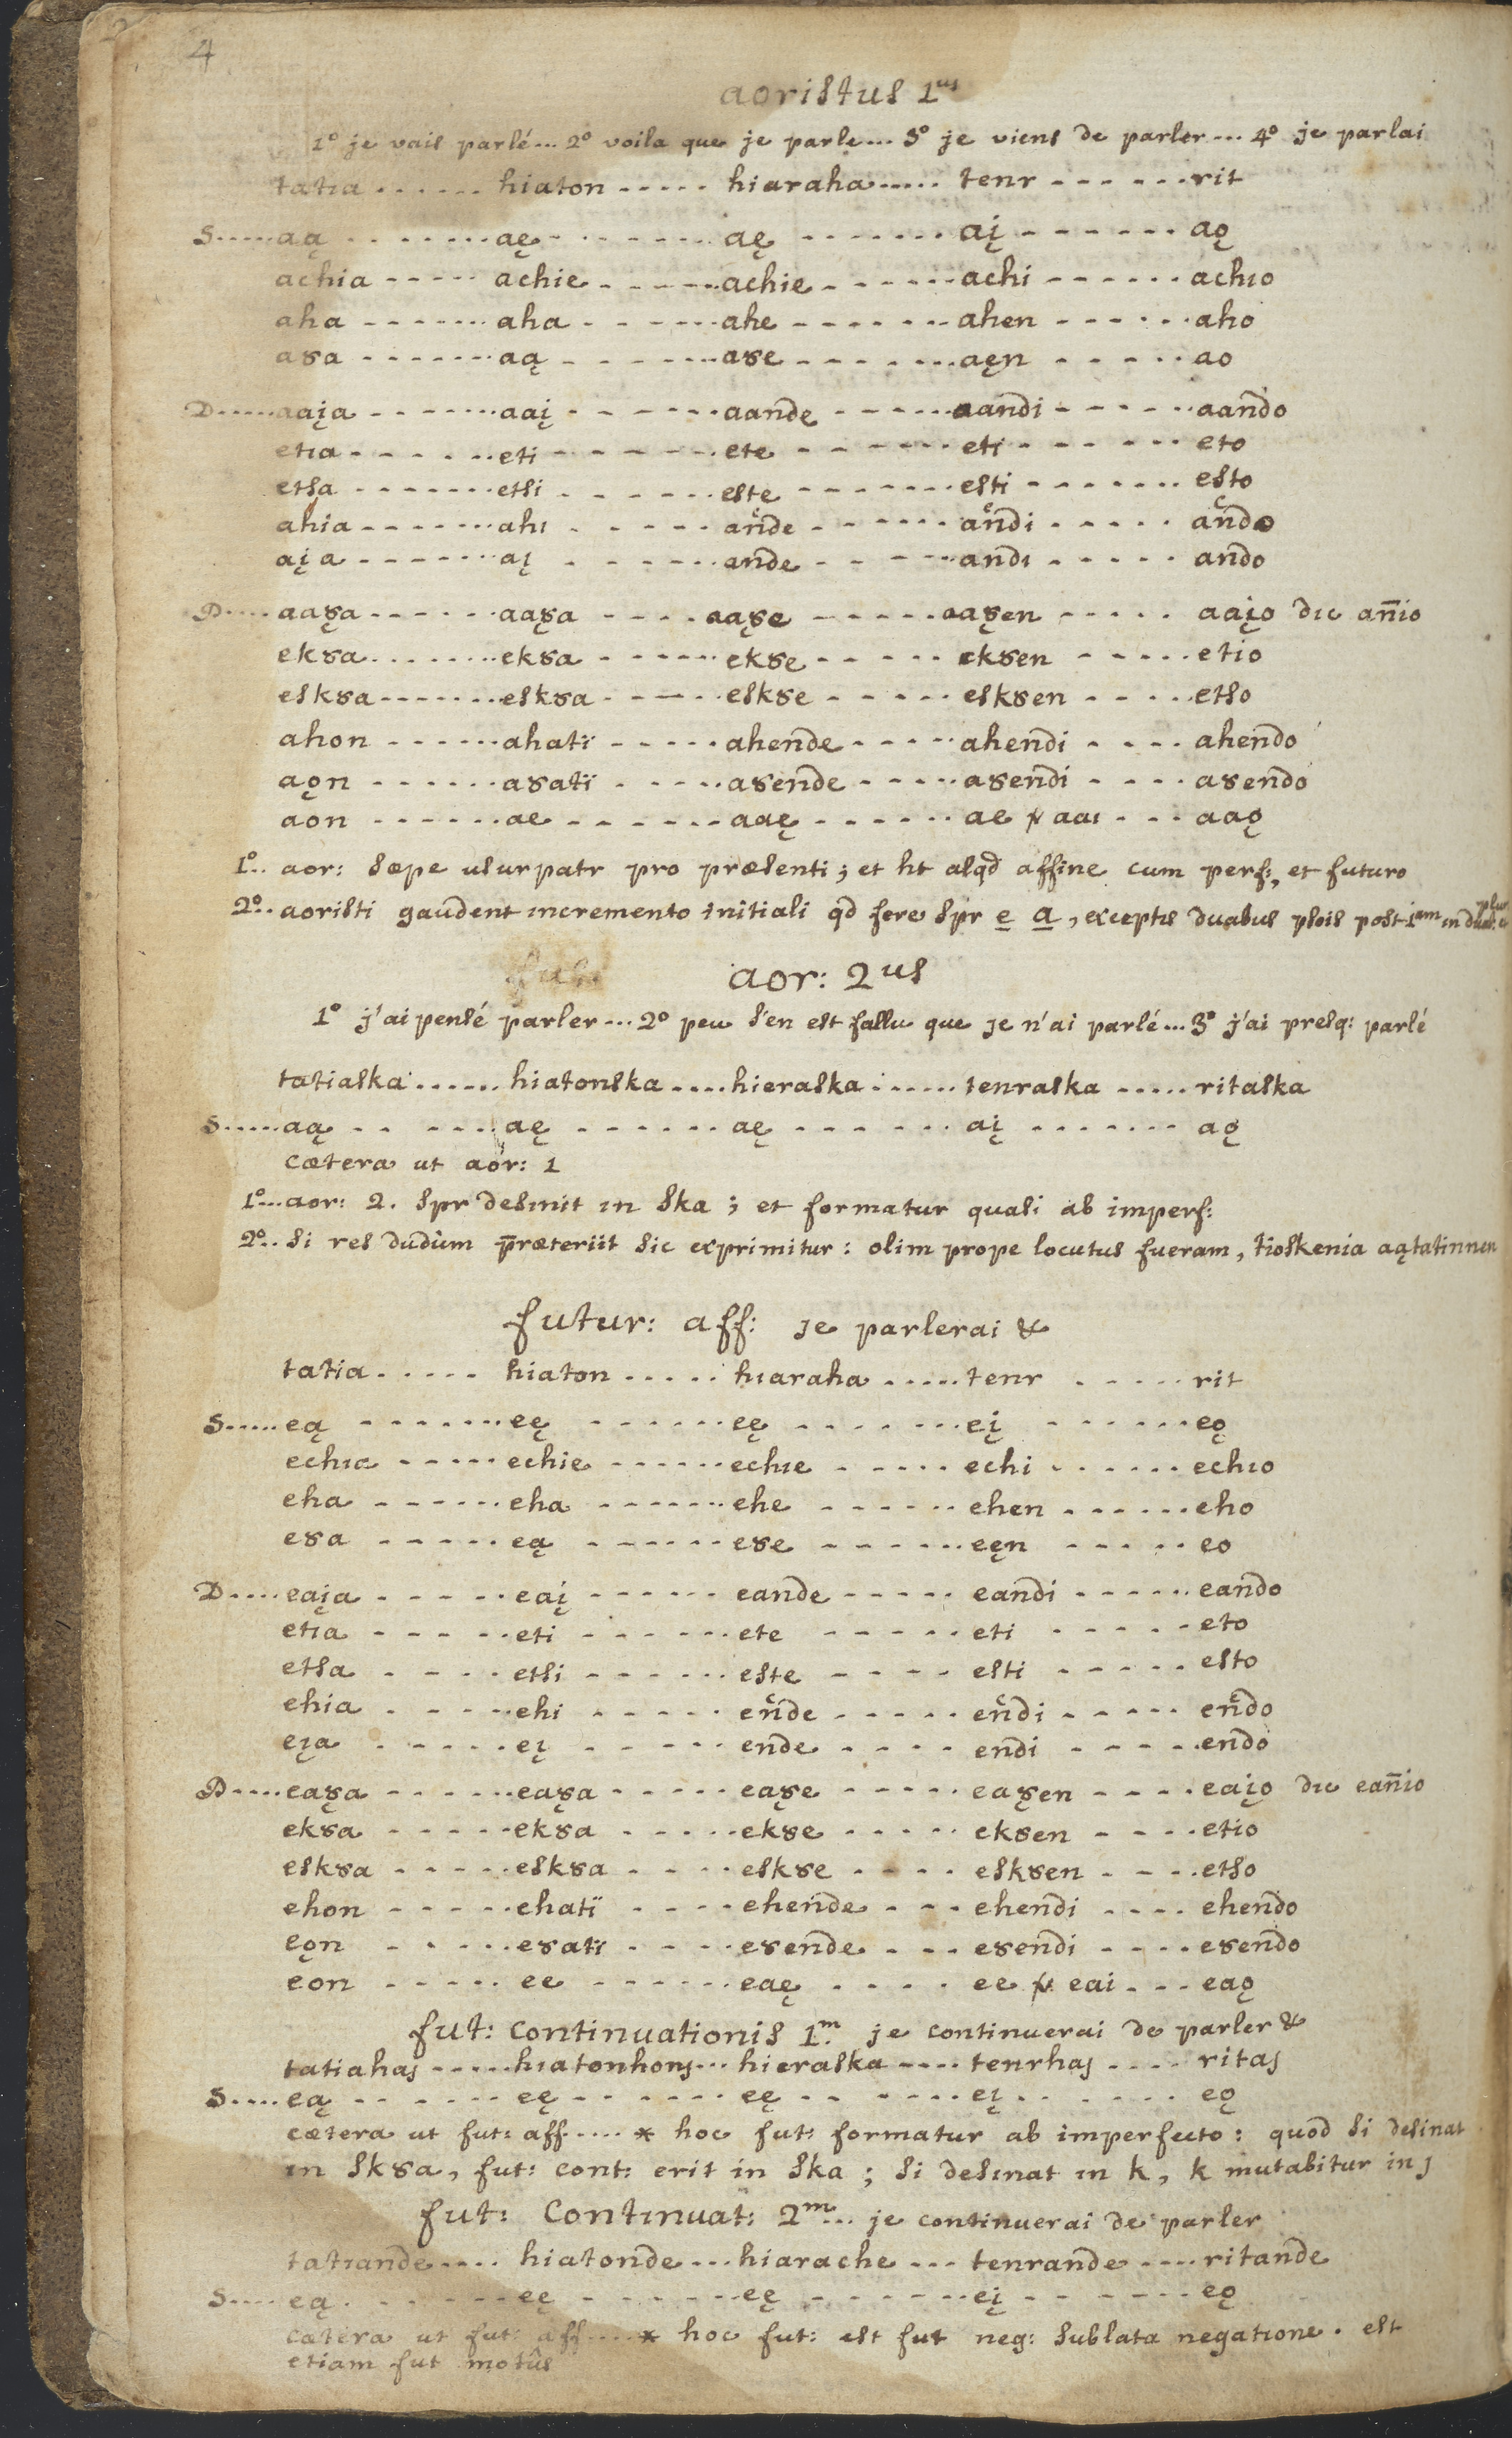 4
aoristus 1us
1° je vais parlé... 2° voila que je parle... 3° je viens de parler... 4° je parlai
tatia ...... hiaton ..... hiaraha ..... tenr ...... rit
S..... aą ....... aę ....... aę ....... aį ....... aǫ
achia ..... achie ...... achie ...... achi ...... achio
aha ....... aha ...... ahe ....... ahen ...... aho
a8a ....... aą ...... a8e ....... aęn ...... ao
D..... aaįa ....... aaį ...... aande ...... aandi ...... aando
etia ...... eti ....... ete ....... eti ....... eto
etsa ....... etsi ...... este ....... esti ....... esto
ahia ....... ahi ...... an͑de ...... an͑di ..... an͑do
aįa ....... aį ...... ande ...... andi ..... ando
P..... aa8̨a ...... aa8̨a ..... aa8̨e ...... aa8̨en ..... aaįo dic an̄io
ek8a ....... ek8a ...... ek8e ..... ek8en ..... etio
esk8a ....... esk8a ...... esk8e ..... esk8en ..... etso
ahon ...... ahatï ..... ahende ..... ahendi .... ahendo
aǫn ...... a8atï ..... a8ende ..... a8endi .... a8endo
aon ...... ae ....... aaę ...... ae aai ... aaǫ
1°.. aor: sæpe usurpatr pro præsenti; et ht alqd affine cum perf:, et futuro
2°.. aoristi gaudent incremento initiali qd fere spr e a, exceptis duabus psois post 1am in dual: plur
fut:
aor: 2us
1° j'ai pensé parler... 2° peu s'en est fallu que je n'ai parlé... 3° j'ai presq: parlé
tatiaska ...... hiatonska .... hieraska ...... tenraska ..... ritaska
S..... aą ...... aę ...... aę ...... aį ....... aǫ
cætera ut aor: 1
1°... aor: 2. spr desinit in ska; et formatur quasi ab imperf:
2°.. si res dudum præteriit sic exprimitur: olim prope locutus fueram, tioskenia aątatinnen
futur: aff: je parlerai &
tatia ..... hiaton ..... hiaraha ..... tenr ...... rit
S..... eą ....... eę ...... eę ....... eį ...... eǫ
echia ..... echie ...... echie ..... echi ...... echio
eha ...... eha ....... ehe ...... ehen ...... eho
e8a ..... eą ...... e8e ...... eęn ..... eo
D.... eaįa ...... eaį ...... eande ..... eandi ...... eando
etia ...... eti ...... ete ...... eti ..... eto
etsa ..... etsi ...... este ..... esti ..... esto
ehia ..... ehi ..... en͑de ..... en͑di ..... en͑do
eįa ..... eį ..... ende .... endi ..... endo
P.... ea8̨a ...... ea8̨a ..... ea8̨e ..... ea8̨en .... eaįo dic ean̄io
ek8a ..... ek8a ..... ek8e ..... ek8en .... etio
esk8a ..... esk8a .... esk8e .... esk8en .... etso
ehon ..... ehatï .... ehende ... ehendi .... ehendo
eǫn ..... e8atï .... e8ende ... e8endi .... e8endo
eon ..... ee ...... eaę .... ee eai ... eaǫ
fut: continuationis 1m. je continuerai de parler &
tatiahaj ..... hiatonhonj ... hieraska .... tenrhaj .... ritaj
S.... eą ...... eę ...... eę ...... eį ...... eǫ
cætera ut fut: aff..... * hoc fut: formatur ab imperfecto: quod si desinat
in sk8a, fut: cont: erit in ska; si desinat in k, k mutabitur in j
fut: continuat: 2m... je continuerai de parler
tatiande .... hiatonde ... hiarache ... tenrande .... ritande
S.... eą ...... eę ...... eę ....... eį ....... eǫ
cætera ut fut: aff.... * hoc fut: est fut neg: sublata negatione. est
etiam fut motûs